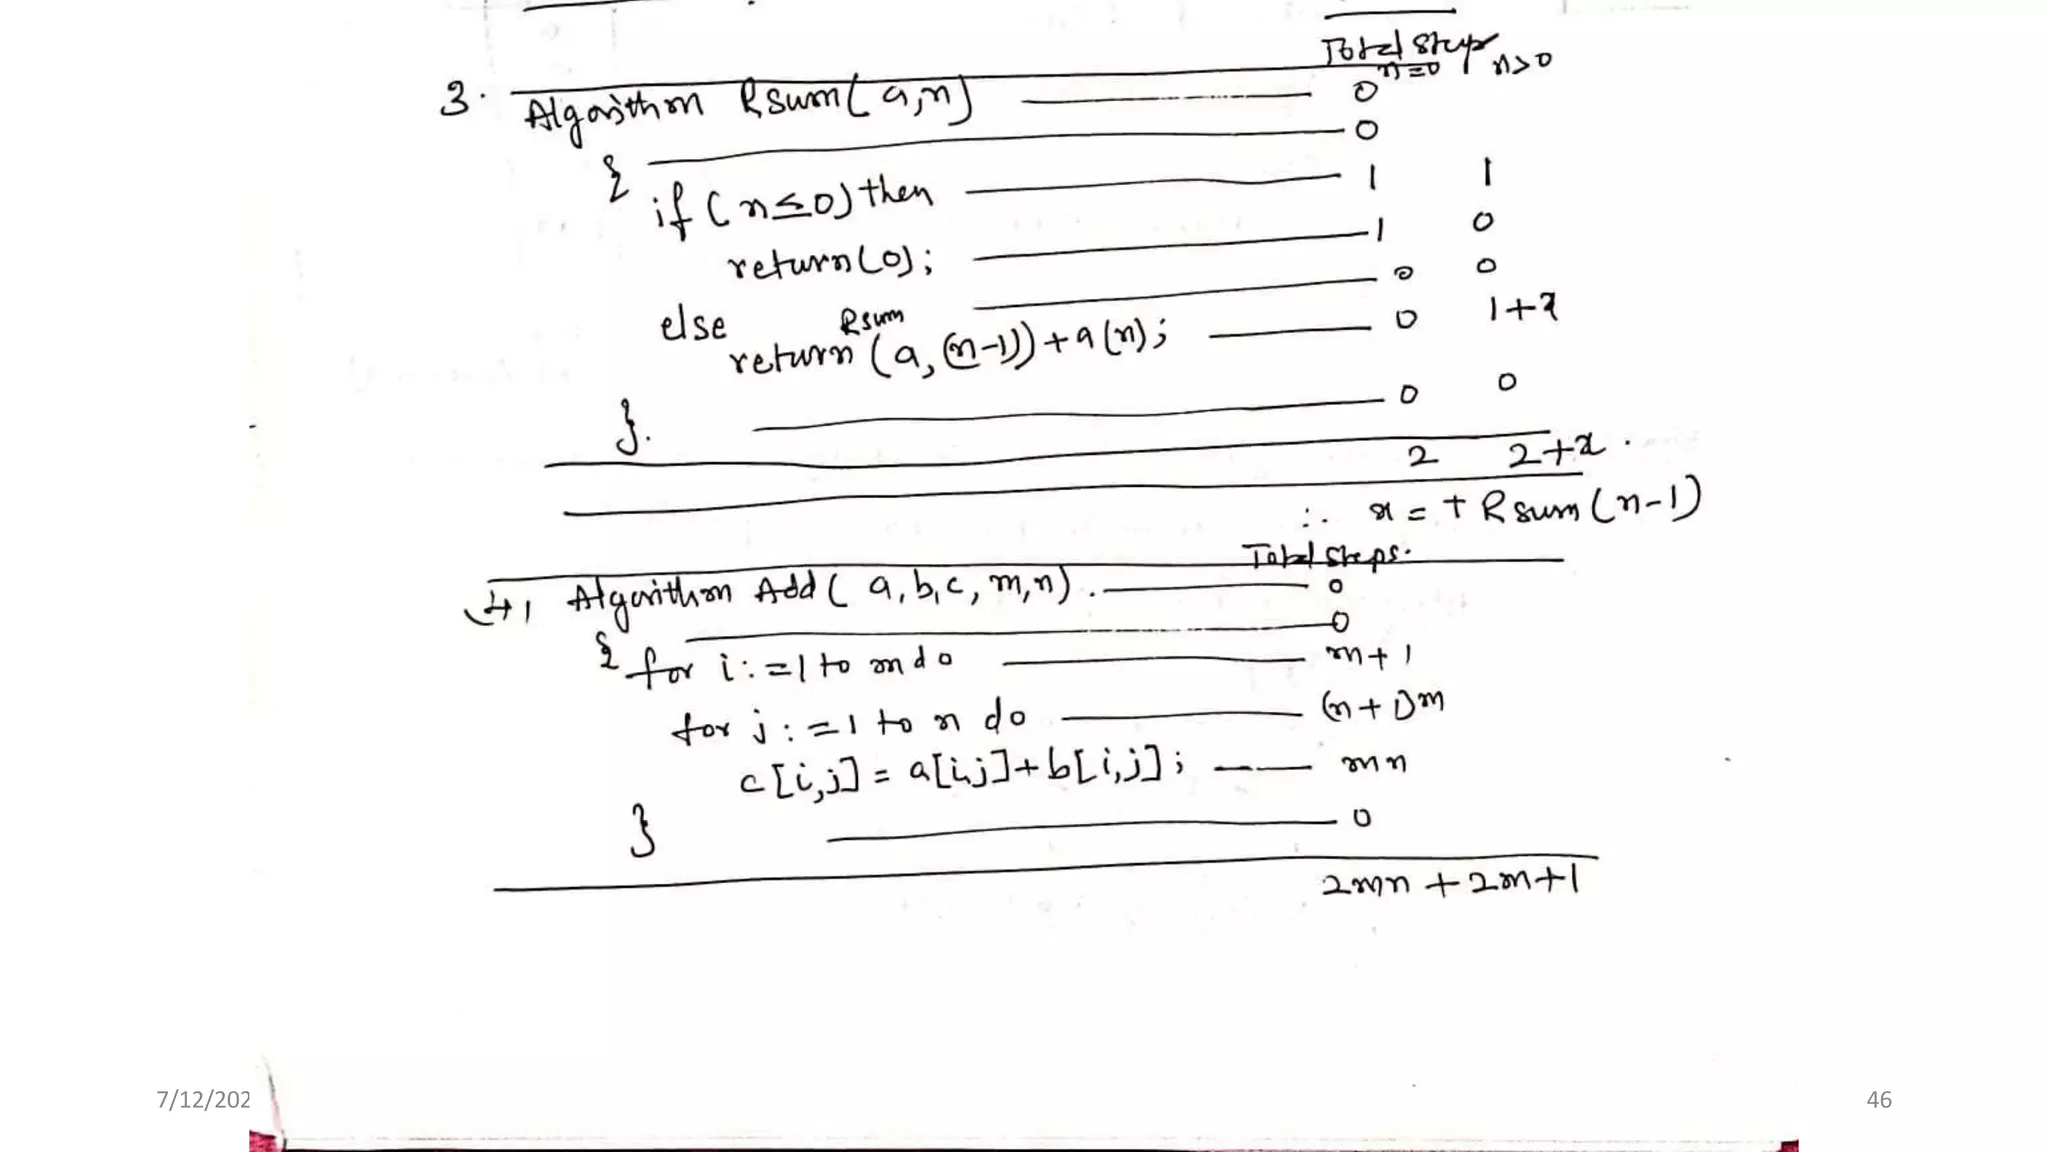 Total steps
n=0 n>0
3. Algorithm Rsum(a,n) 0
{ 0
if (n≤0) then 1 1
return(0); 1 0
else 0 0
return Rsum(a,(n-1))+a(n); 0 1+x
}. 0 0
2 2+x.
∴ x = t Rsum(n-1)
Total steps.
4, Algorithm Add( a,b,c, m,n). 0
{ 0
for i:=1 to m do m+1
for j:=1 to n do (n+1)m
c[i,j] = a[i,j]+b[i,j]; mn
} 0
2mn + 2m+1
7/12/202
46